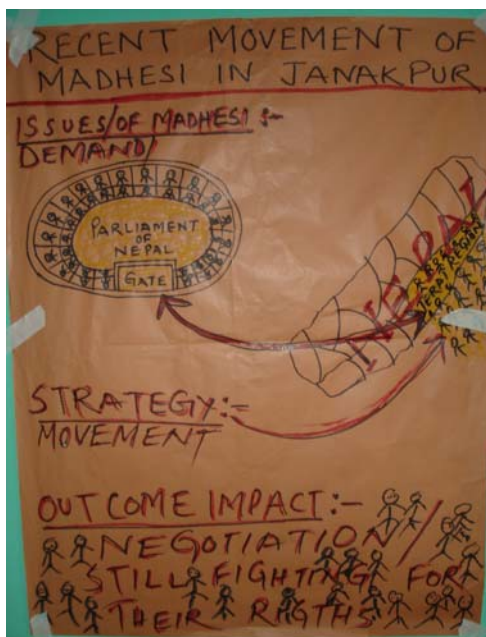 RECENT MOVEMENT OF
MADHESI IN JANAKPUR
ISSUES/OF MADHESI :-
DEMAND
PARLIAMENT
OF
NEPAL
GATE
NEPAL
STRATEGY:-
MOVEMENT
OUTCOME IMPACT:-
NEGOTIATION/
STILL FIGHTING FOR
THEIR RIGTHS